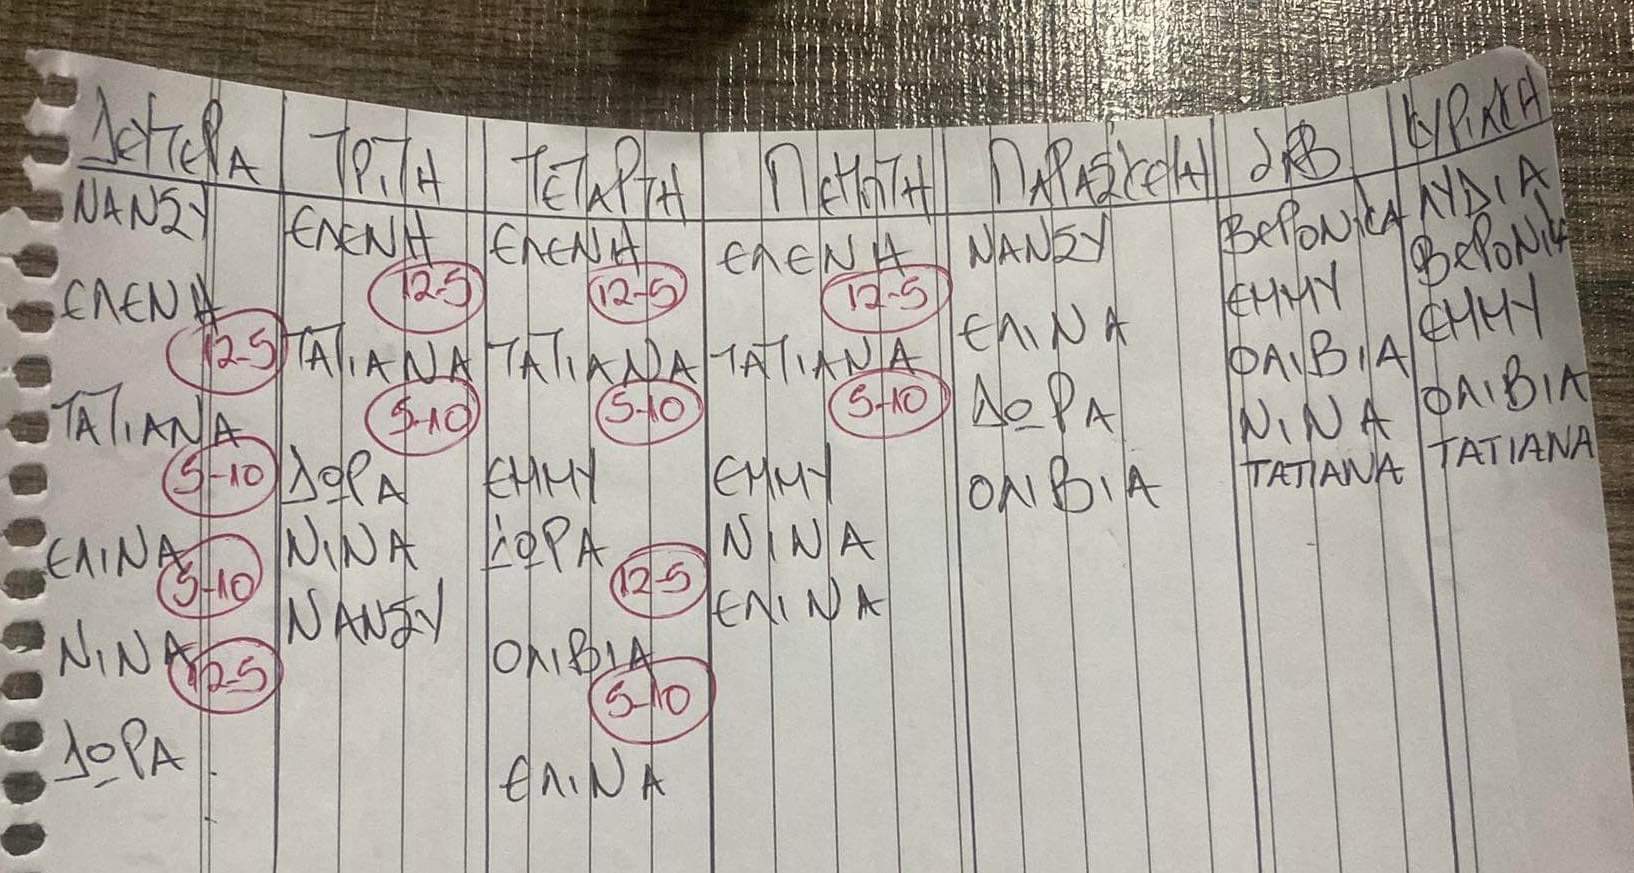 ΔΕΥΤΕΡΑ
NANSY
ΕΛΕΝΑ
12-5
TATIANA
5-10
ΕΛΙΝΑ
5-10
ΝΙΝΑ
12-5
ΔΩΡΑ
ΤΡΙΤΗ
ΕΛΕΝΑ
12-5
TATIANA
5-10
ΔΩΡΑ
ΝΙΝΑ
NANSY
ΤΕΤΑΡΤΗ
ΕΛΕΝΑ
12-5
TATIANA
5-10
ΕΜΜΥ
ΔΩΡΑ
12-5
ΟΛΙΒΙΑ
5-10
ΕΛΙΝΑ
ΠΕΜΠΤΗ
ΕΛΕΝΑ
12-5
TATIANA
5-10
ΕΜΜΥ
ΝΙΝΑ
ΕΛΙΝΑ
ΠΑΡΑΣΚΕΥΗ
NANSY
ΕΛΙΝΑ
ΔΩΡΑ
ΟΛΙΒΙΑ
ΣΑΒ
ΒΕΡΟΝΙΚΑ
ΕΜΜΥ
ΟΛΙΒΙΑ
ΝΙΝΑ
TATIANA
ΚΥΡΙΑΚΗ
ΛΥΔΙΑ
ΒΕΡΟΝΙΚ
ΕΜΜΥ
ΟΛΙΒΙΑ
TATIANA